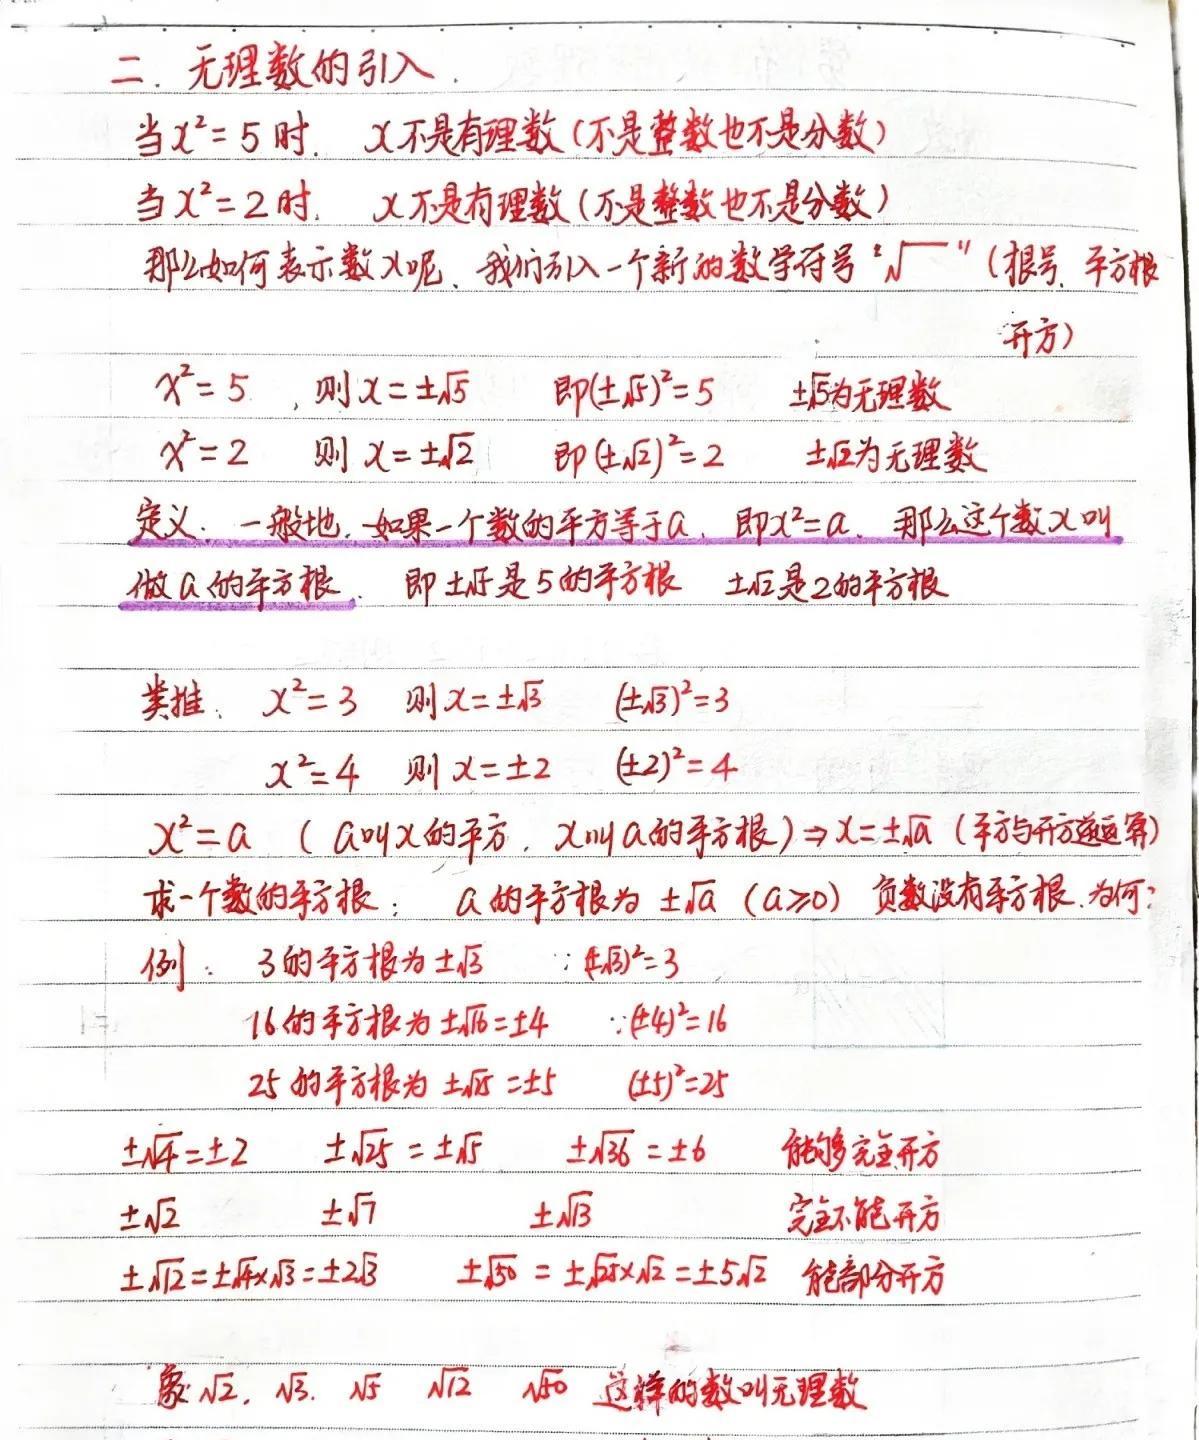 二. 无理数的引入.
当x²=5时. x不是有理数(不是整数也不是分数)
当x²=2时. x不是有理数(不是整数也不是分数)
那么如何表示数x呢. 我们引入一个新的数学符号“√‾”(根号. 平方根
开方)
x²=5, 则x=±√5 即(±√5)²=5 ±√5为无理数
x²=2 则x=±√2 即(±√2)²=2 ±√2为无理数
定义. 一般地, 如果一个数的平方等于a, 即x²=a. 那么这个数x叫
做a的平方根. 即±√5是5的平方根 ±√2是2的平方根
类推. x²=3 则x=±√3 (±√3)²=3
x²=4 则x=±2 (±2)²=4
x²=a (a叫x的平方, x叫a的平方根)⇒x=±√a (平方与开方逆运算)
求一个数的平方根: a的平方根为±√a (a≥0) 负数没有平方根.为何?
例: 3的平方根为±√3 ∵(±√3)²=3
16的平方根为±√16=±4 ∵(±4)²=16
25的平方根为±√25=±5 (±5)²=25
±√4=±2 ±√25=±√5 ±√36=±6 能够完全开方
±√2 ±√7 ±√13 完全不能开方
±√12=±√4×√3=±2√3 ±√50=±√25×√2=±5√2 能部分开方
象√2, √3. √5 √12 √50 这样的数叫无理数